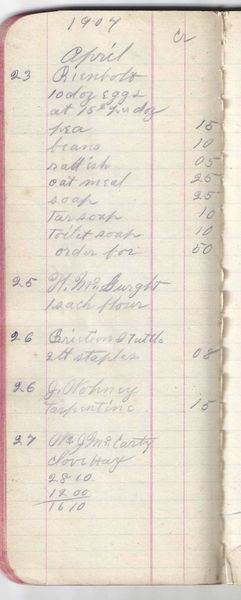 1907
Cr
April
23 Rienbolt
10 doz eggs
at 15¢ per doz
pea 15
beans 10
raddish 05
oat meal 25
soap 25
tar soap 10
toilet soap 10
order for 50
25 W. Mc
1 sack flour
26 & Tuttle
2 lb staples 08
26 J.
tarpentine 15
27 Wm J McCarty
Clover Hay
28 10
12 00
16 10